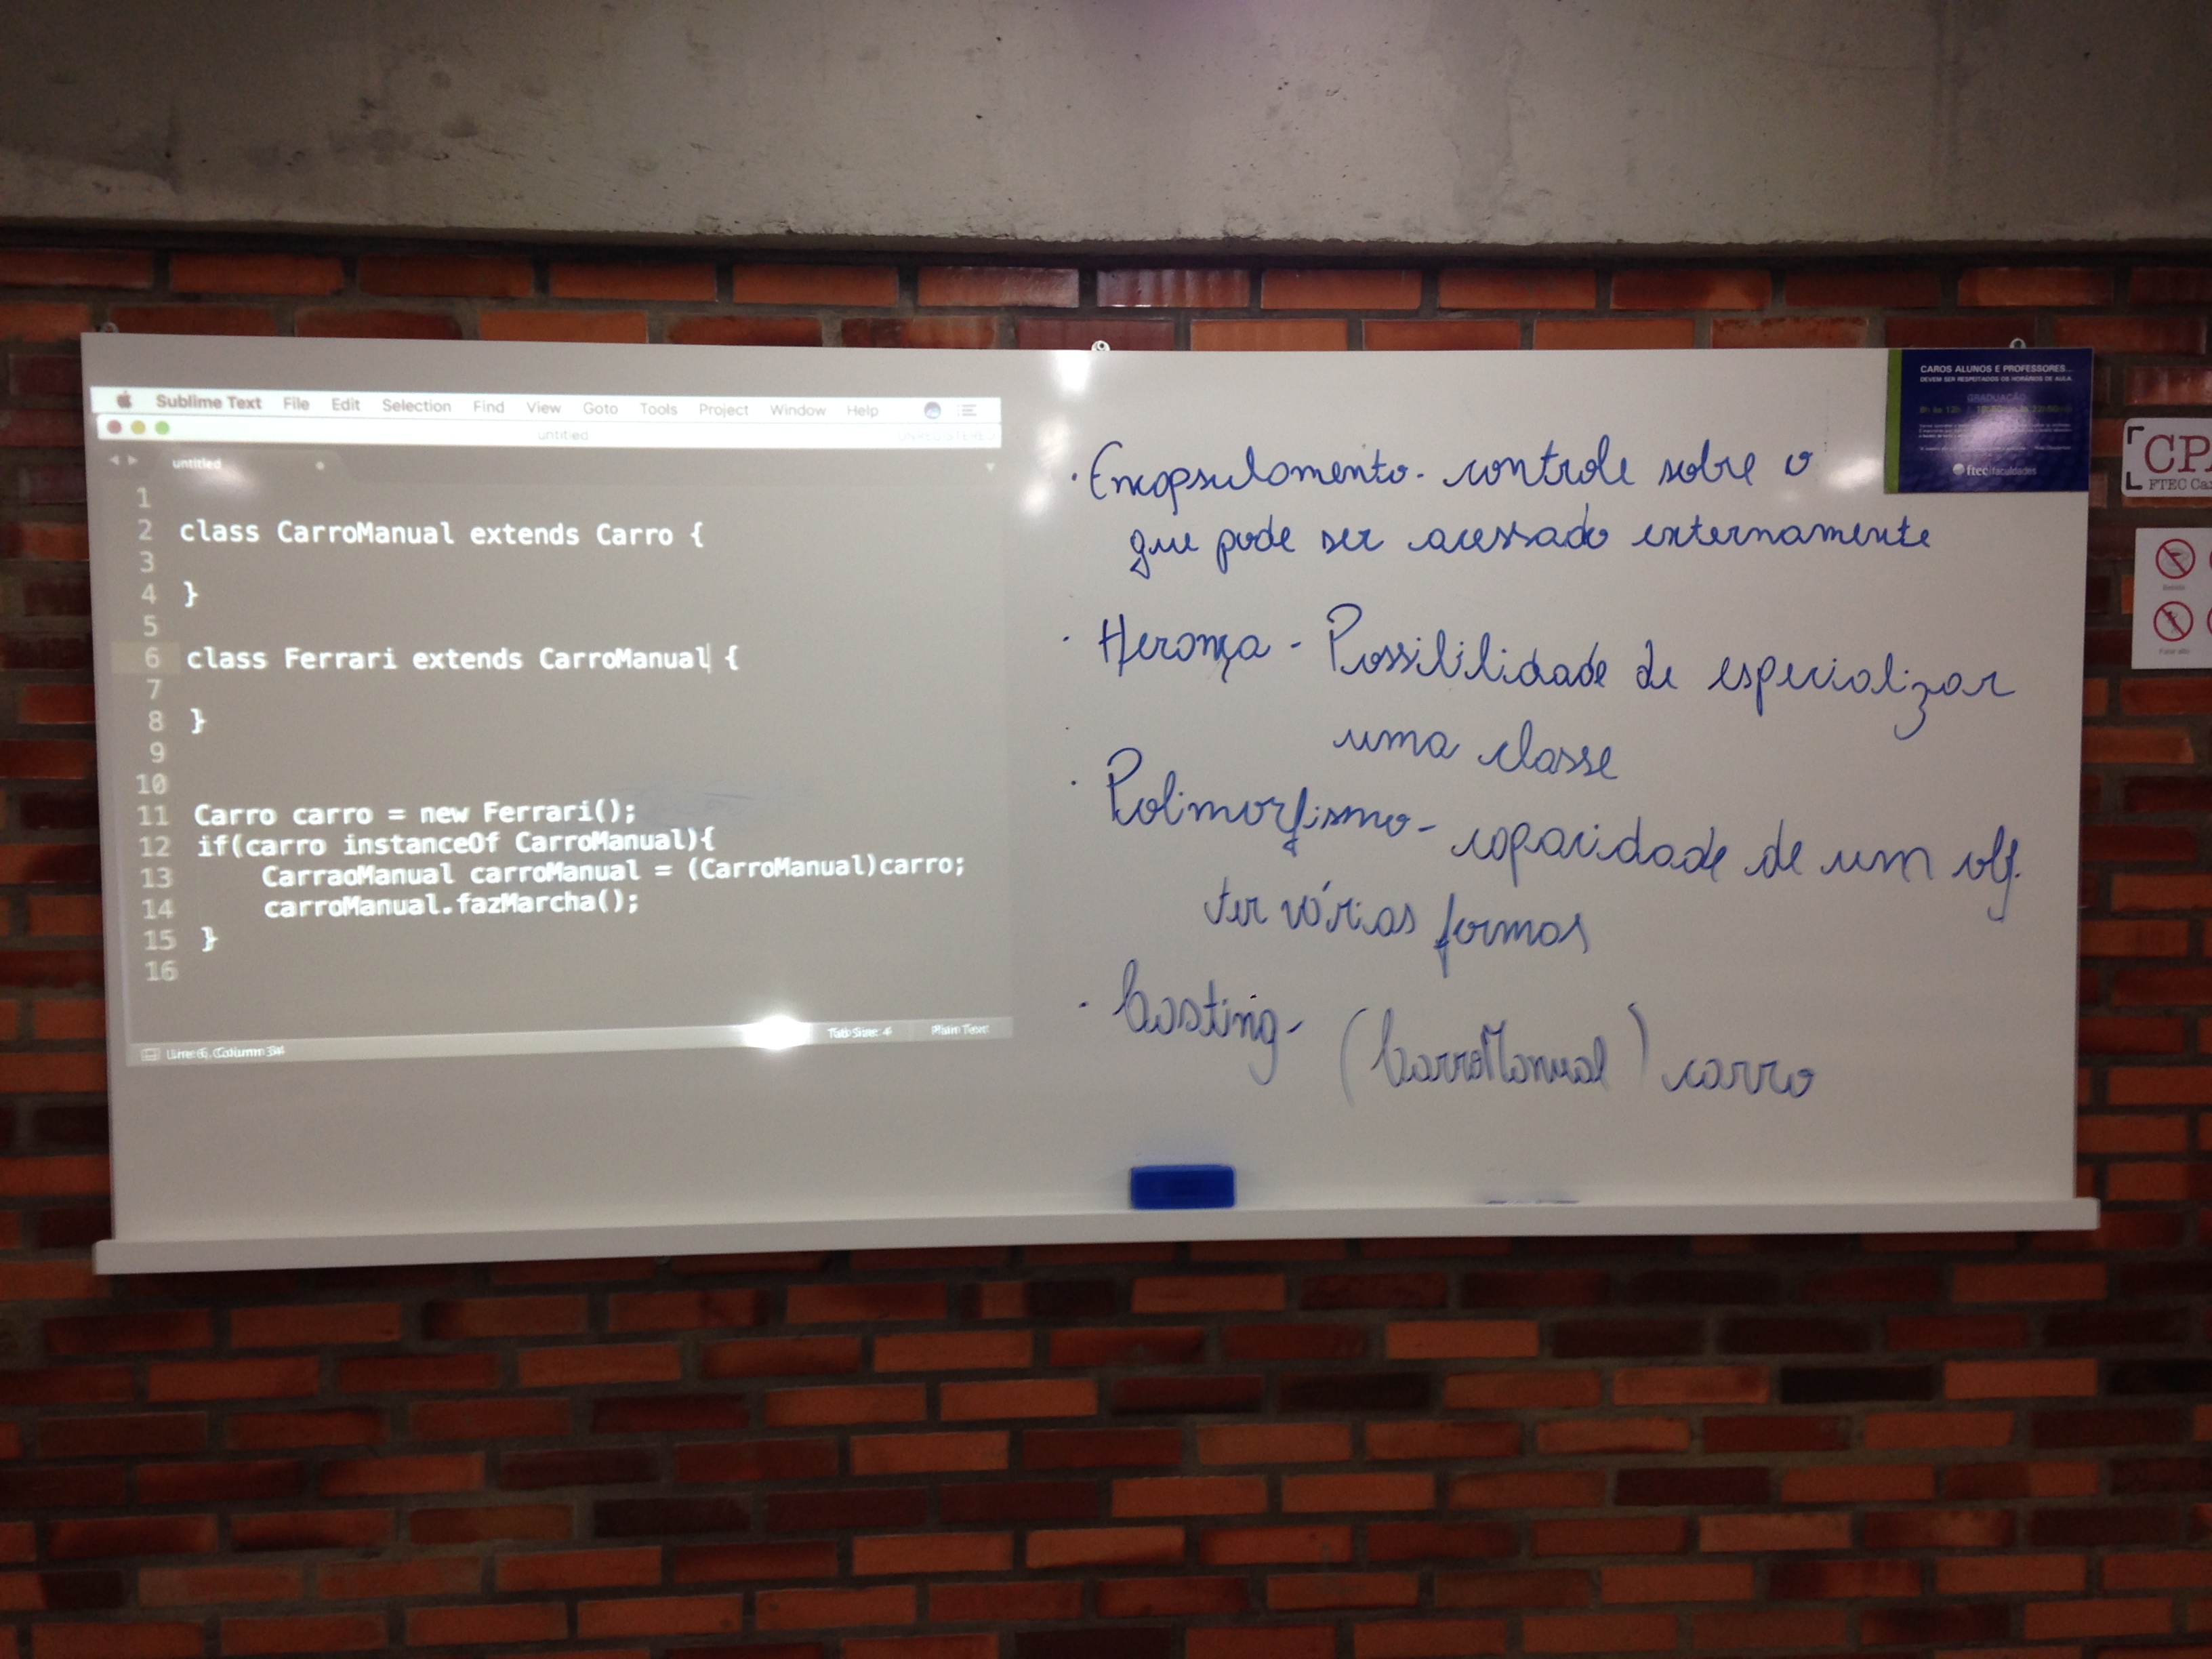 Sublime Text File Edit Selection Find View Goto Tools Project Window Help
untitled
UNREGISTERED
untitled
1
2 class CarroManual extends Carro {
3
4 }
5
6 class Ferrari extends CarroManual {
7
8 }
9
10
11 Carro carro = new Ferrari();
12 if(carro instanceOf CarroManual){
13 CarraoManual carroManual = (CarroManual)carro;
14 carroManual.fazMarcha();
15 }
16
Tab Size: 4 Plain Text
· Encapsulamento - controle sobre o
que pode ser acessado externamente
· Herança - Possibilidade de especializar
uma classe
· Polimorfismo - capacidade de um obj.
ter várias formas
· Casting - (CarroManual) carro
CAROS ALUNOS E PROFESSORES...
DEVEM SER RESPEITADOS OS HORÁRIOS DE AULA
GRADUAÇÃO
ftec faculdades
FTEC